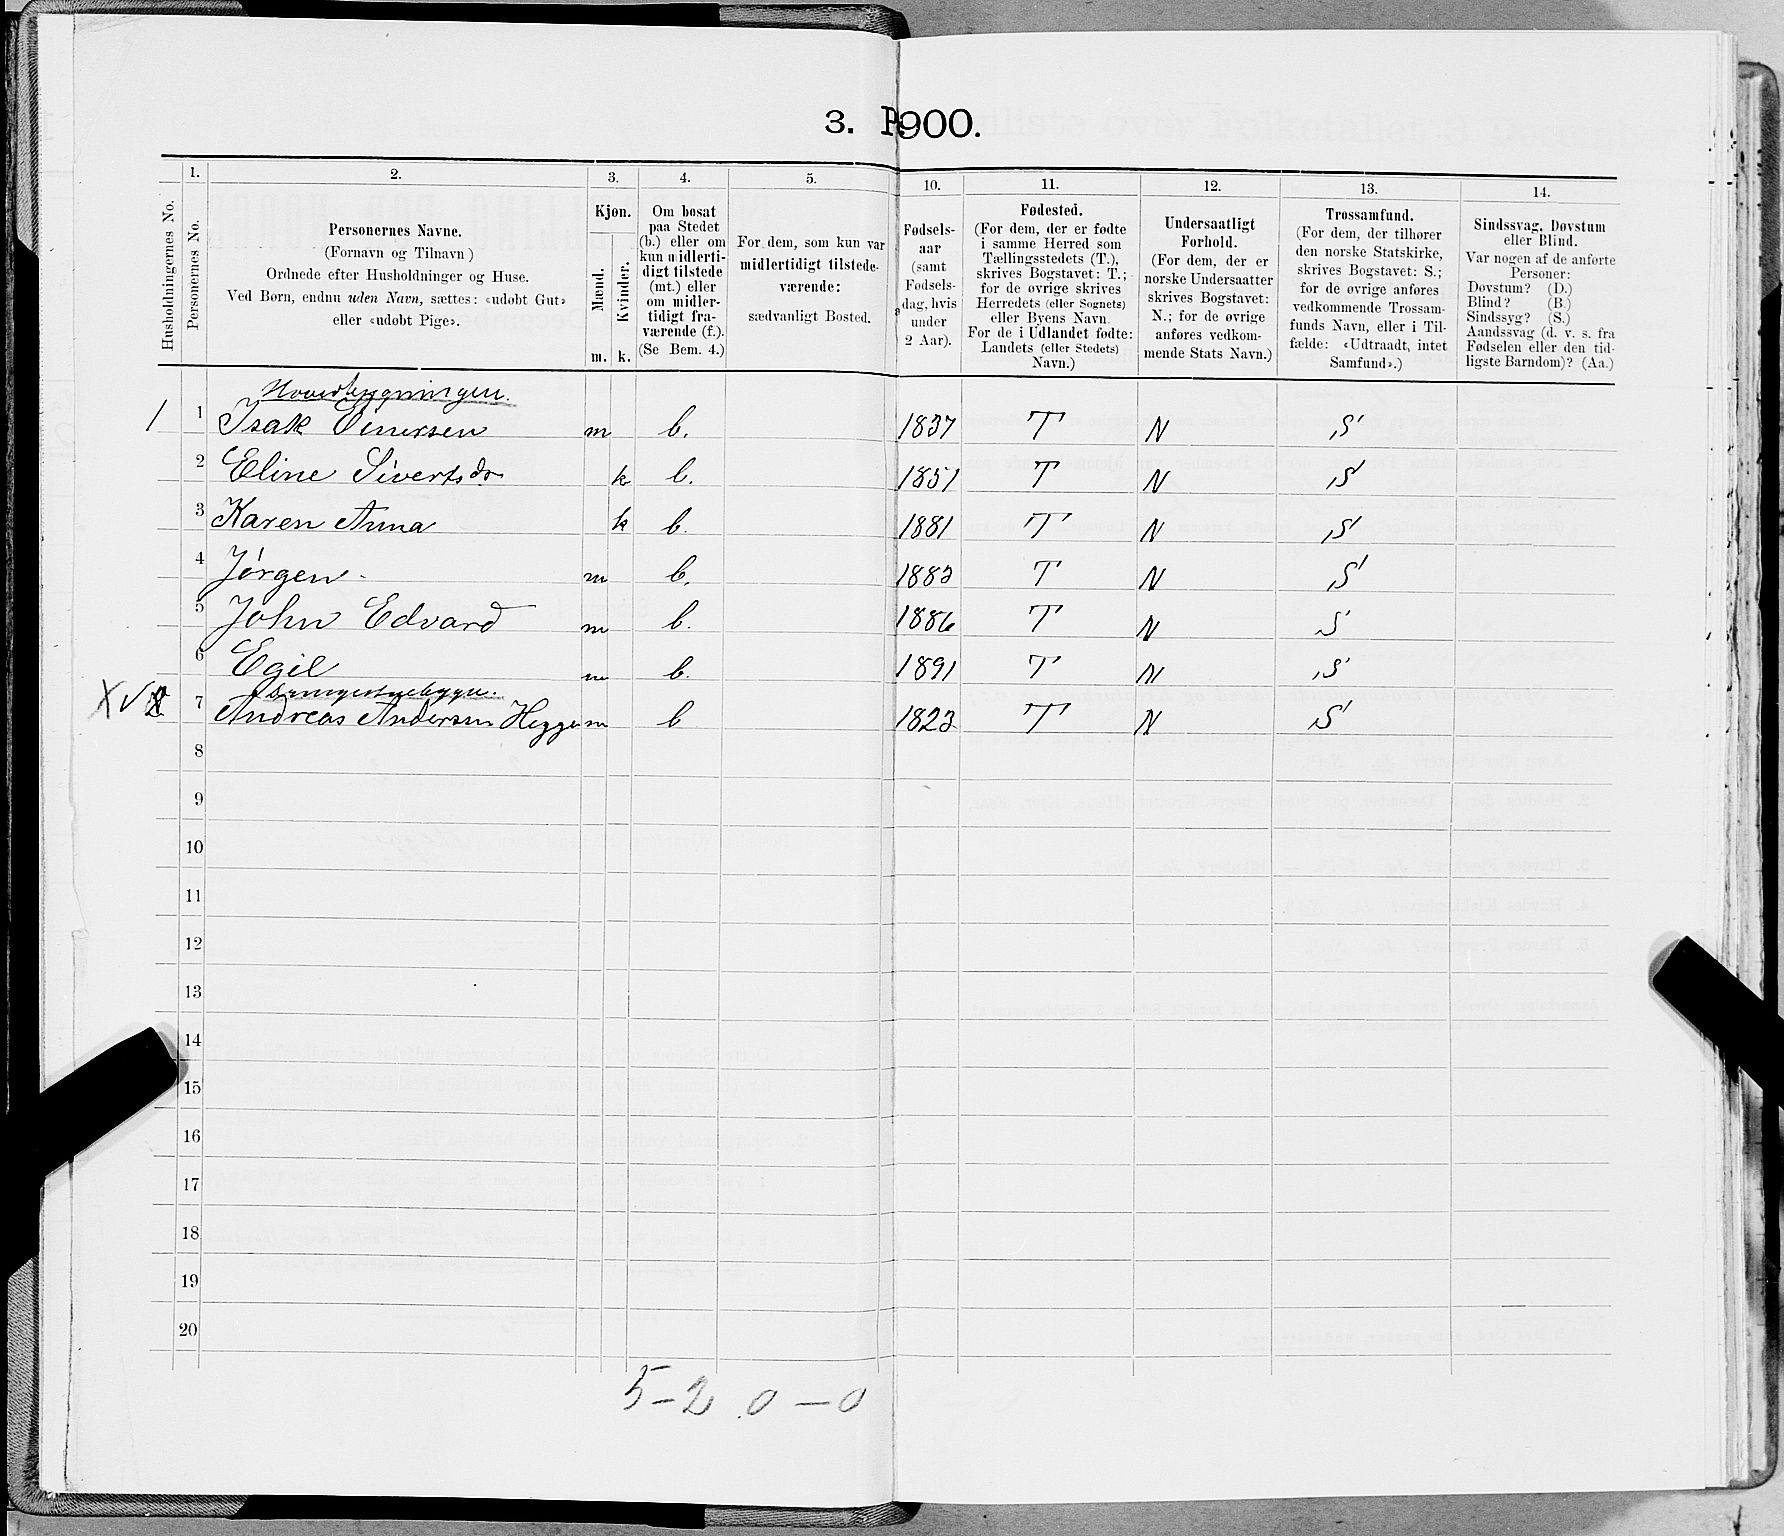 3. P 900.
1.
2.
3.
4.
5.
10.
11.
12.
13.
14.
Husholdningernes No.
Personernes No.
Personernes Navne.
(Fornavn og Tilnavn)
Ordnede efter Husholdninger og Huse.
Ved Børn, endnu uden Navn, sættes: «udøbt Gut»
eller «udøbt Pige».
Kjøn.
Mænd.
Kvinder.
m. k.
Om bosat
paa Stedet
(b.) eller om
kun midlerti-
digt tilstede
(mt.) eller
om midler-
tidigt fra-
værende (f.).
(Se Bem. 4.)
For dem, som kun var
midlertidigt tilstede-
værende:
sædvanligt Bosted.
Fødsels-
aar
(samt
Fødsels-
dag, hvis
under
2 Aar).
Fødested.
(For dem, der er fødte
i samme Herred som
Tællingsstedets (T.),
skrives Bogstavet: T.;
for de øvrige skrives
Herredets (eller Sognets)
eller Byens Navn.
For de i Udlandet fødte:
Landets (eller Stedets)
Navn.)
Undersaatligt
Forhold.
(For dem, der er
norske Undersaatter
skrives Bogstavet:
N.; for de øvrige
anføres vedkom-
mende Stats Navn.)
Trossamfund.
(For dem, der tilhører
den norske Statskirke,
skrives Bogstavet: S.;
for de øvrige anføres
vedkommende Trossam-
funds Navn, eller i Til-
fælde: «Udtraadt, intet
Samfund».)
Sindssvag, Døvstum
eller Blind.
Var nogen af de anførte
Personer:
Døvstum? (D.)
Blind? (B.)
Sindssyg? (S.)
Aandssvag (d. v. s. fra
Fødselen eller den tid-
ligste Barndom)? (Aa.)
Hovedbygningen.
1 1 Isak Einersen m b. 1837 T N S
2 Eline Sivertsdr k b. 1851 T N S
3 Karen Anna k b. 1881 T N S
4 Jörgen m b. 1882 T N S
5 John Edvard m b. 1886 T N S
6 Egil m b. 1891 T N S
X V 7 Andreas Andersen Hegge m b 1823 T N S
8
9
10
11
12
13
14
15
16
17
18
19
20
5-2 0-0